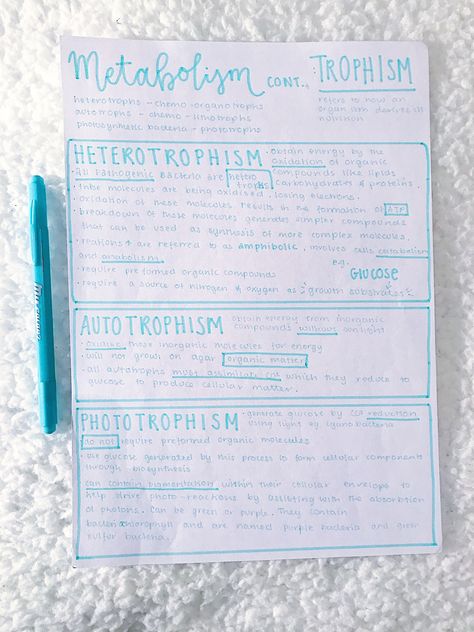 Metabolism CONT. : TROPHISM
heterotrophs - chemo-organotrophs
autotrophs - chemo-lithotrophs
photosynthetic bacteria - phototrophs
refers to how an
organism derives its
nutrition
HETEROTROPHISM - obtain energy by the
oxidation of organic
• all pathogenic bacteria are heterotrophs compounds like lipids
carbohydrates & proteins.
molecules are being oxidised, losing electrons.
• oxidation of these molecules results in the formation of ATP
• breakdown of these molecules generates simpler compounds
that can be used as synthesis of more complex molecules.
• reactions are referred to as amphibolic, involves cells catabolism
and anabolism. e.g.
• require preformed organic compounds GLUCOSE
• require a source of nitrogen & oxygen as growth substrates
AUTOTROPHISM obtain energy from inorganic
compounds without sunlight
• oxidise these inorganic molecules for energy
• will not grow on agar organic matter
• all autotrophs must assimilate CO2 which they reduce to
glucose to produce cellular matter.
PHOTOTROPHISM - generate glucose by CO2 reduction
using light eg. cyanobacteria
do not require preformed organic molecules
• use glucose generated by this process to form cellular components
through - biosynthesis
can contain pigmentation within their cellular envelope to
help drive photo-reactions by assisting with the absorbtion
of photons. Can be green or purple. They contain
chlorophyll and are named purple bacteria and green
sulfur bacteria.